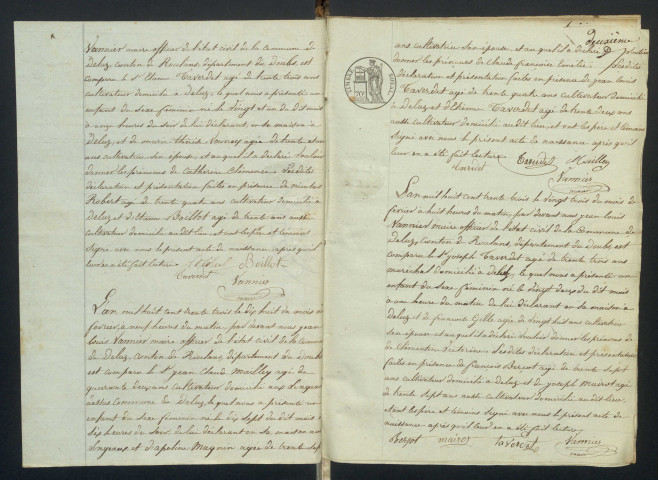 Vannier maire officier de l'état civil de la commune de
Deluz, canton de Roulans, département du Doubs, est
comparu le Sr Taverdet agé de trente trois ans
cultivateur domicilié à Deluz, lequel nous a présenté un
enfant du sexe féminin né le vingt et un de dit mois
à onze heures du soir de lui déclarant, en sa maison à
Deluz et de agée de trente et un
ans cultivatrice son épouse et auquel il a déclaré vouloir
donner les prénoms de Catherine Clémence Lesdites
déclaration et présentation faites en présence de Nicolas
Robert agé de trente quatre ans cultivateur domicilié à
Deluz et d'Etienne Baillot agé de trente ans aussi
cultivateur domicilié audit lieu et ont les père et témoins
signé avec nous le présent acte de naissance après qu'il
leur en a été fait lecture.
Taverdet Vannier
L'an mil huit cent trente trois le dix huit du mois de
février à neuf heures du matin, par devant nous Jean
Louis Vannier maire officier de l'état civil de la commune
de Deluz, canton de Roulans, département du Doubs
est comparu le Sr Jean Claude Mailley agé de
quarante deux ans cultivateur domicilié aux
Commune de Deluz, lequel nous a présenté un
enfant du sexe féminin né le dix sept du dit mois à
dix heures du soir, de lui déclarant en sa maison aux
et d'Apoline Magnin agée de trente sept
deuxième
ans cultivatrice son épouse et auquel il a déclaré vouloir
donner les prénoms de Claude Françoise Lesdites
déclaration et présentation faites en présence de Jean Louis
Taverdet agé de trente quatre ans cultivateur domicilié
à Deluz et d'Etienne Taverdet agé de trente deux ans
aussi cultivateur domicilié audit lieu, et ont les père et témoins
signé avec nous le présent acte de naissance après qu'il
leur en a été fait lecture
Taverdet Mailley
Vannier
maire
L'an mil huit cent trente trois le vingt trois du mois de
février à huit heures du matin par devant nous Jean Louis
Vannier maire officier de l'état civil de la Commune de
Deluz, Canton de Roulans, département du Doubs est
comparu le Sr Joseph Taverdet agé de trente trois ans
maréchal domicilié à Deluz, lequel nous a présenté un
enfant du sexe féminin né le vingt deux du dit mois
à une heure du matin de lui déclarant en sa maison à
Deluz et de Françoise Gille agée de vingt huit ans cultivatrice
son épouse et auquel il a déclaré vouloir donner les prénoms de
Clémentine Victorine Lesdites déclaration et présentation
faites en présence de François Bersot agé de trente sept
ans cultivateur domicilié à Deluz et de Joseph Mairot agé
de trente sept ans aussi cultivateur domicilié audit lieu
et ont les père et témoins signé avec nous le présent acte de
naissance après qu'il leur en a été fait lecture
Bersot mairot taverdet Vannier
maire